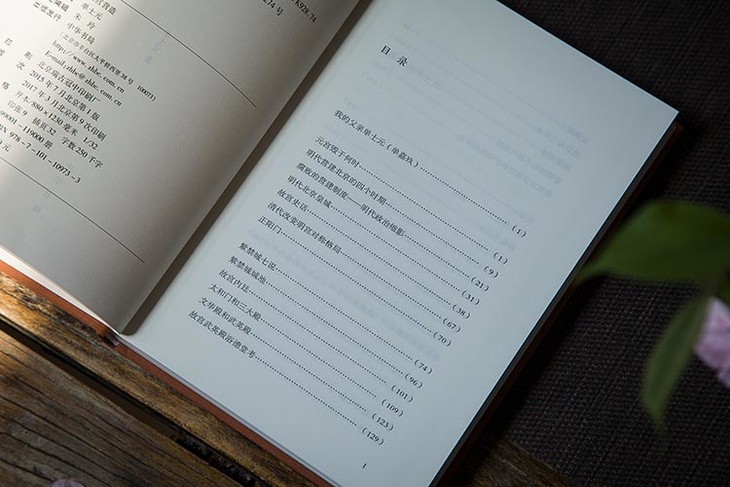 K928.74
中华书局
http://www.zhbc.com.cn
E-mail:zhbc@zhbc.com.cn
北京瑞古冠中印刷厂
2015年7月北京第1版
2017年3月北京第9次印刷
880×1230毫米 1/32
印张9 插页32 字数250千字
119000册
ISBN 978-7-101-10973-3
目 录
我的父亲单士元(单嘉玖)……(1)
元宫毁于何时……(1)
明代营建北京的四个时期……(9)
腐败的营建制度——明代政治缩影……(21)
明代北京皇城……(31)
故宫史话……(38)
清代改变明宫对称格局……(67)
正阳门……(70)
紫禁城七说……(74)
紫禁城城池……(96)
故宫内廷……(101)
太和门和三大殿……(109)
文华殿和武英殿……(123)
故宫武英殿浴德堂考……(129)
1